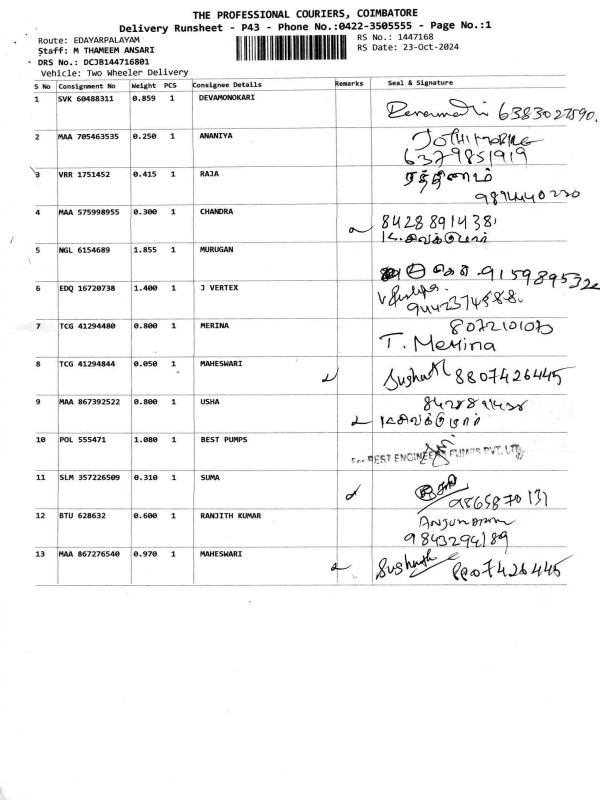 THE PROFESSIONAL COURIERS, COIMBATORE
Delivery Runsheet - P43 - Phone No.:0422-3505555 - Page No.:1
Route: EDAYARPALAYAM
RS No.: 1447168
Staff: M THAMEEM ANSARI
RS Date: 23-Oct-2024
DRS No.: DCJB144716801
Vehicle: Two Wheeler Delivery
S No Consignment No Weight PCS Consignee Details Remarks Seal & Signature
1 SVK 60488311 0.859 1 DEVAMONOKARI 6383027590.
2 MAA 705463535 0.250 1 ANANIYA
6379851919
3 VRR 1751452 0.415 1 RAJA
4 MAA 575998955 0.300 1 CHANDRA 8428891438
5 NGL 6154689 1.855 1 MURUGAN
6 EDQ 16720738 1.400 1 J VERTEX
7 TCG 41294480 0.800 1 MERINA
T. Merina
8 TCG 41294844 0.050 1 MAHESWARI 8807426445
9 MAA 867392522 0.800 1 USHA
10 POL 555471 1.080 1 BEST PUMPS
For BEST ENGINEERS PUMPS PVT. LTD.
11 SLM 357226509 0.310 1 SUMA
9865870131
12 BTU 628632 0.600 1 RANJITH KUMAR
9843294189
13 MAA 867276540 0.970 1 MAHESWARI